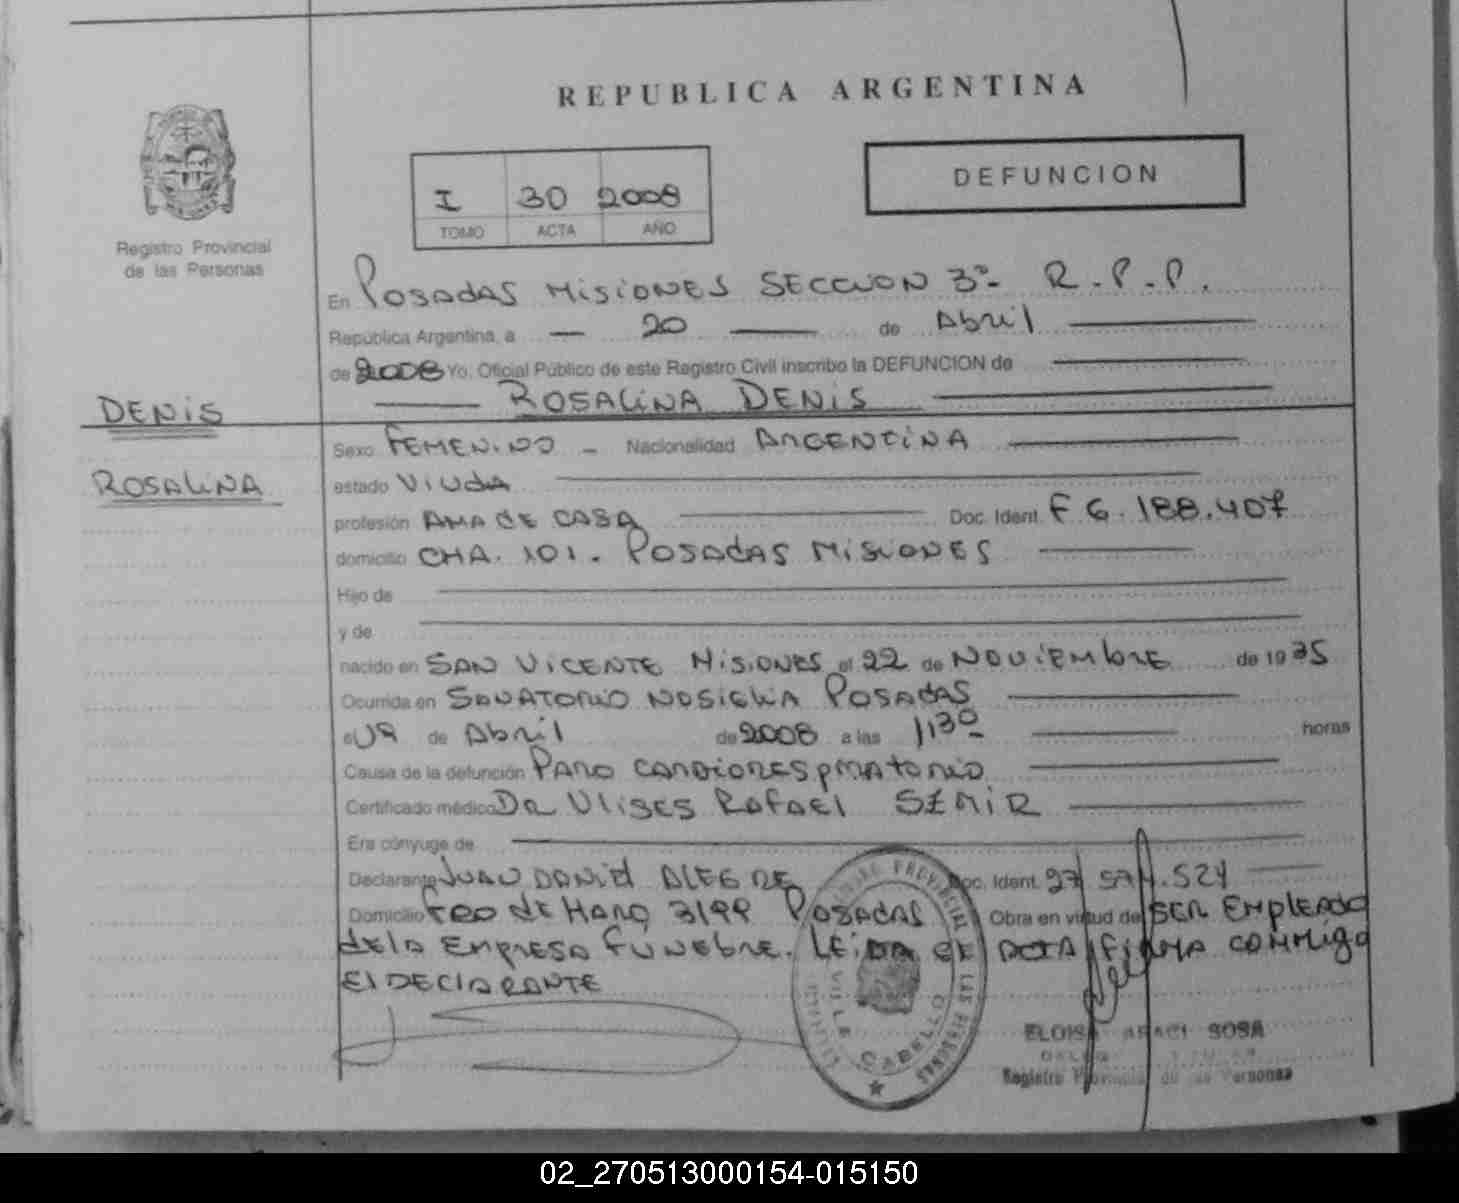 REPUBLICA ARGENTINA
DEFUNCION
I 30 2008
TOMO ACTA AÑO
Registro Provincial
de las Personas
En POSADAS MISIONES SECCION 3º R.P.P.
República Argentina, a 20 de Abril
de 2008 Yo, Oficial Público de este Registro Civil inscribo la DEFUNCION de
ROSALINA DENIS
DENIS
ROSALINA
Sexo FEMENINO - Nacionalidad ARGENTINA
estado VIUDA
profesión AMA DE CASA Doc. Ident. F 6.188.407
domicilio CHA. 101. POSADAS MISIONES
Hijo de
y de
nacido en SAN VICENTE MISIONES el 22 de NOVIEMBRE de 1935
Ocurrida en SANATORIO NOSIGLIA POSADAS
el 19 de Abril de 2008 a las 1130 horas
Causa de la defunción PARO CARDIORESPIRATORIO
Certificado médico DR ULISES RAFAEL SEMIR
Era cónyuge de
Declarante JUAN DANIEL ALEGRE Doc. Ident. 27.574.524
Domicilio FCO DE HARO 3199 POSADAS Obra en virtud de SER EMPLEADO
DE LA EMPRESA FUNEBRE. LEIDA EL ACTA FIRMA CONMIGO
El DECLARANTE
ELOISA ARACI SOSA
Registro Provincial de las Personas
02_270513000154-015150